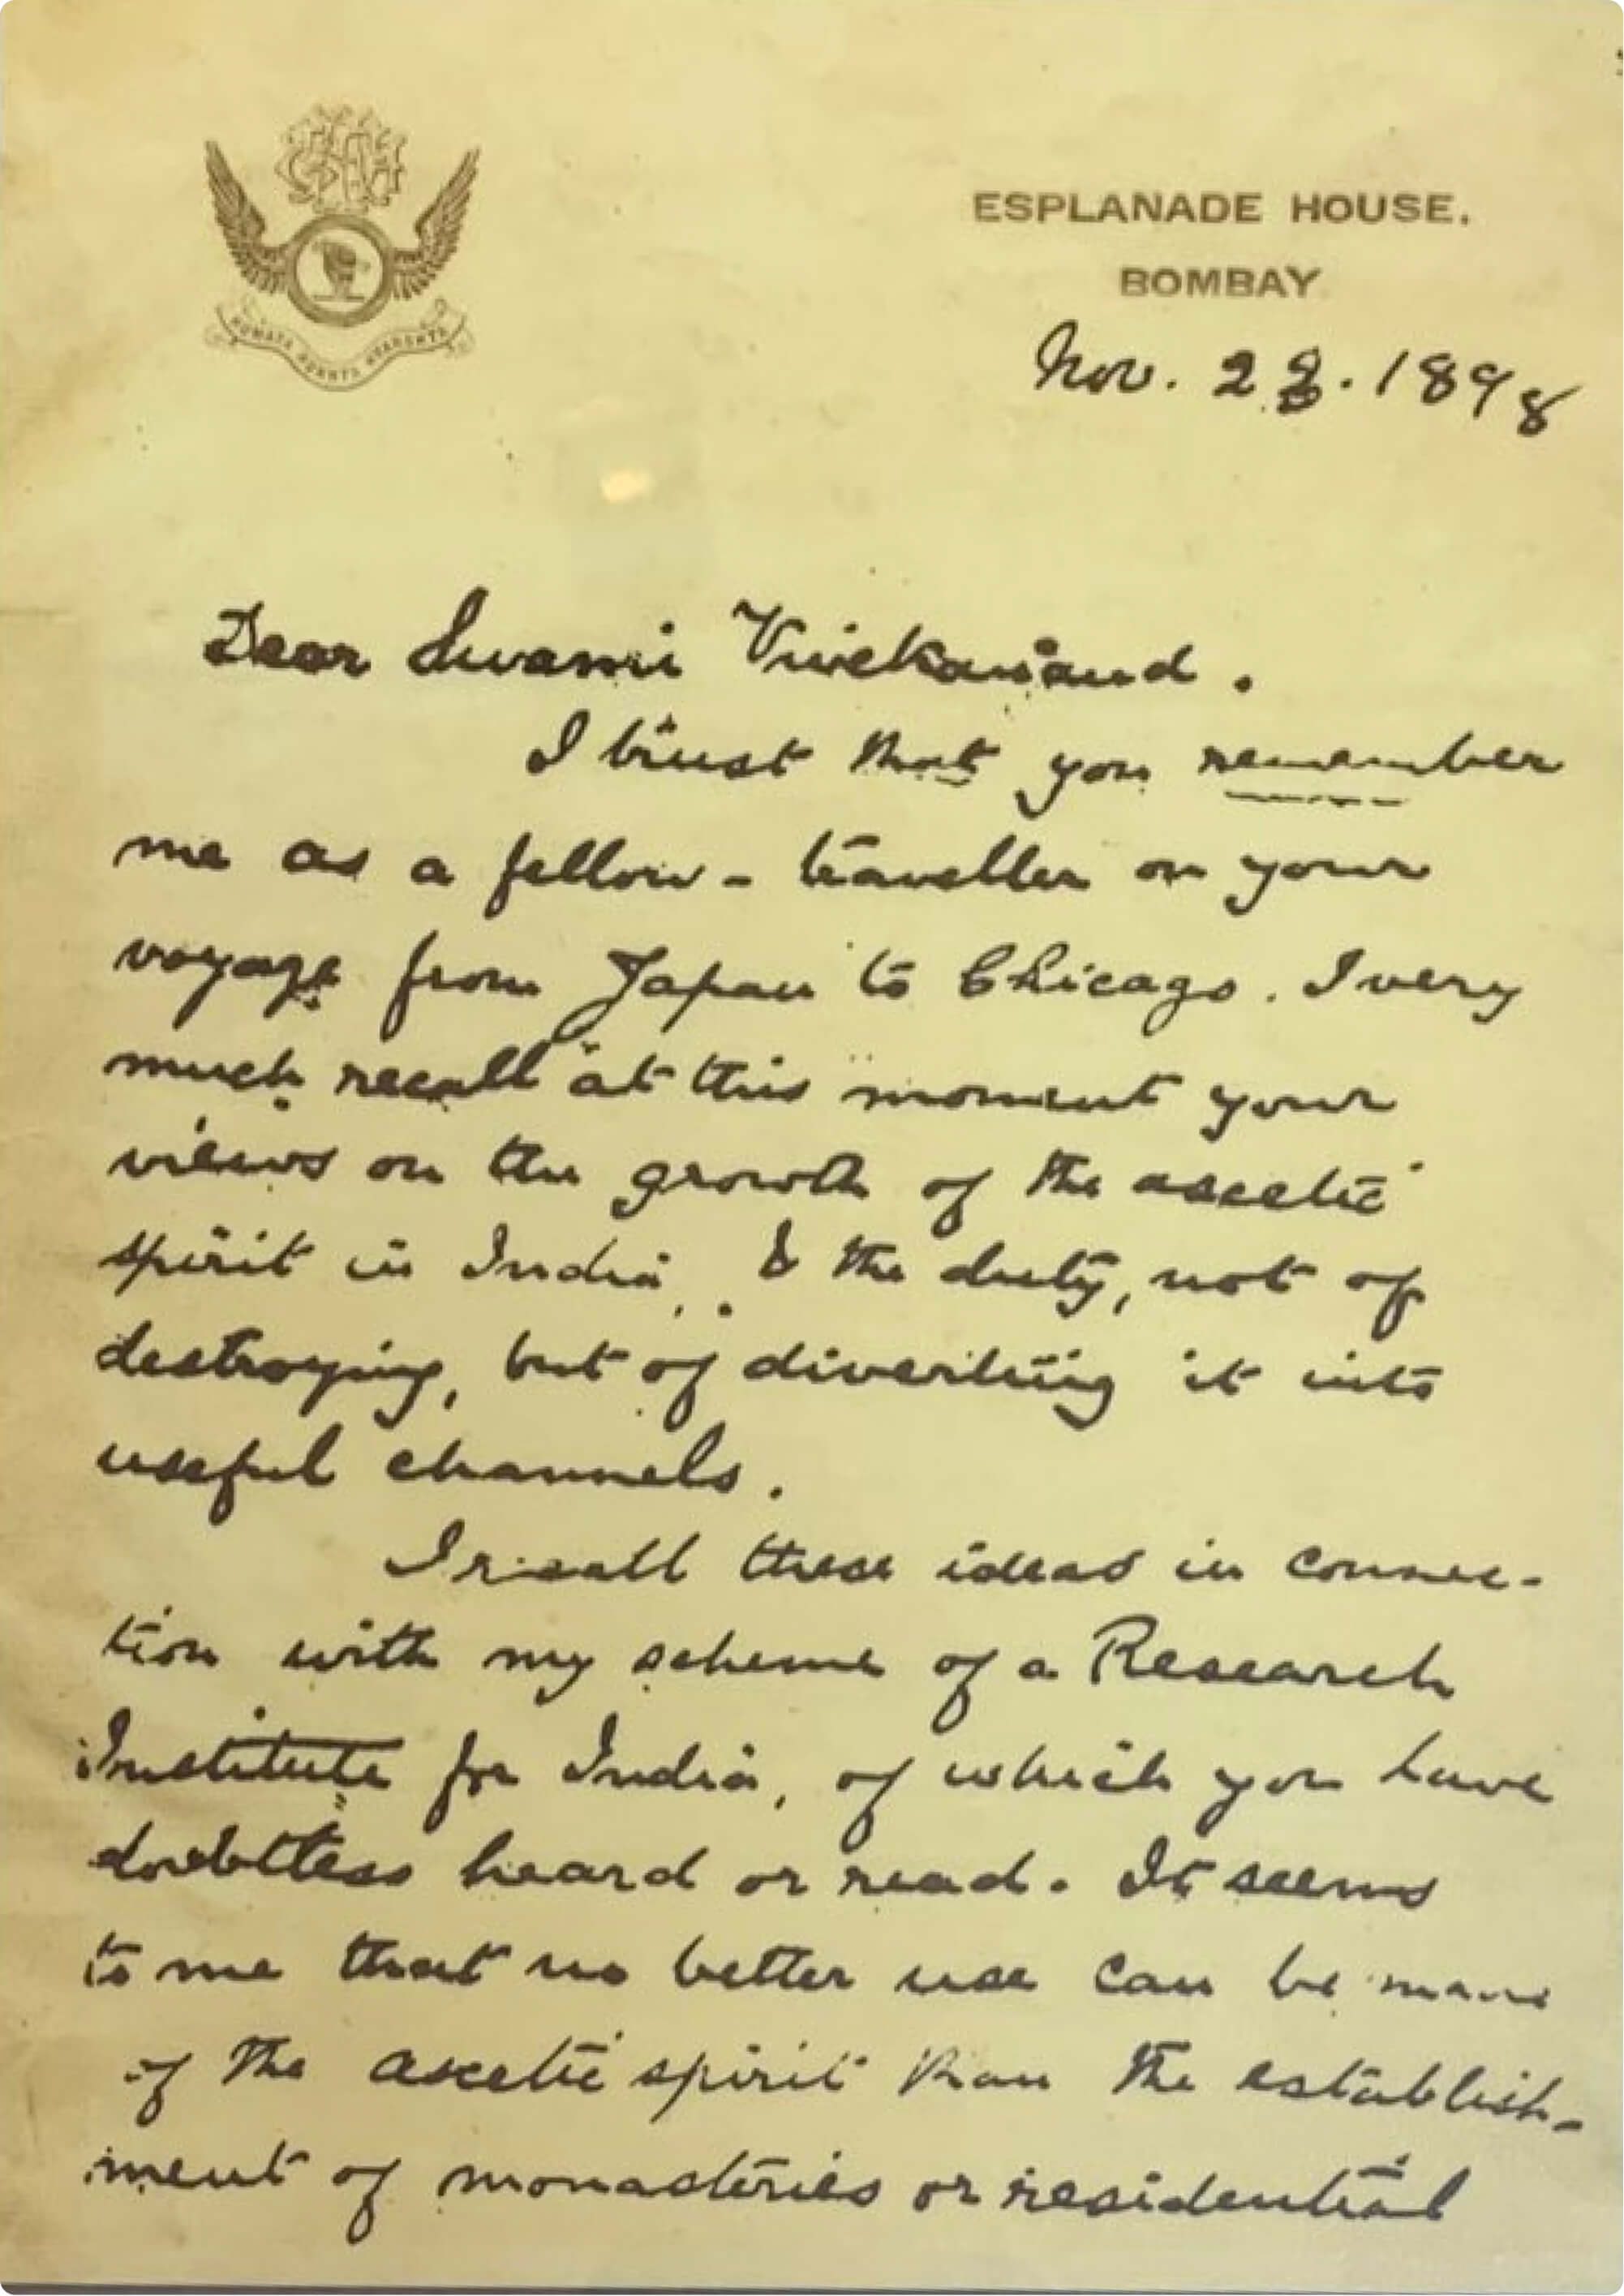 HUMATA HUKHTA HVARSHTA
ESPLANADE HOUSE.
BOMBAY
Nov. 23. 1898
Dear Swami Vivekanand.
I trust that you remember
me as a fellow-traveller on your
voyage from Japan to Chicago. I very
much recall at this moment your
views on the growth of the ascetic
spirit in India, & the duty, not of
destroying, but of diverting it into
useful channels.
I recall these ideas in connec-
tion with my scheme of a Research
Institute for India, of which you have
doubtless heard or read. It seems
to me that no better use can be made
of the ascetic spirit than the establish-
ment of monasteries or residential